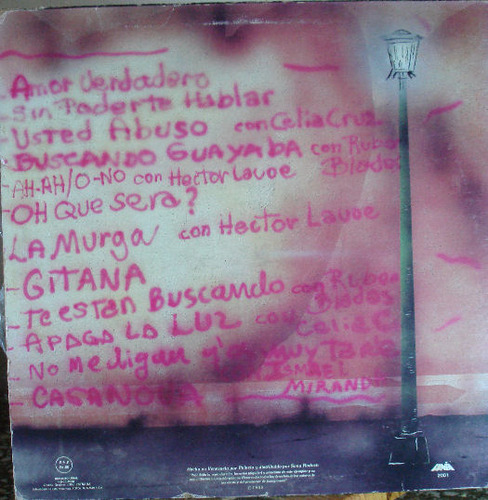 Amor Verdadero
Sin Poderte Hablar
Usted Abuso con Celia Cruz
BUSCANDO GUAYABA con Ruben Blades
AH-AH/O-NO con Hector Lavoe
OH Que Sera?
LA Murga con Hector Lavoe
GITANA
Te estan Buscando con Ruben Blades
APAGA LA LUZ con Celia C
No me digan y'es muy Tarde
ISMAEL MIRANDA
CASANOVA
Hecho en Venezuela por